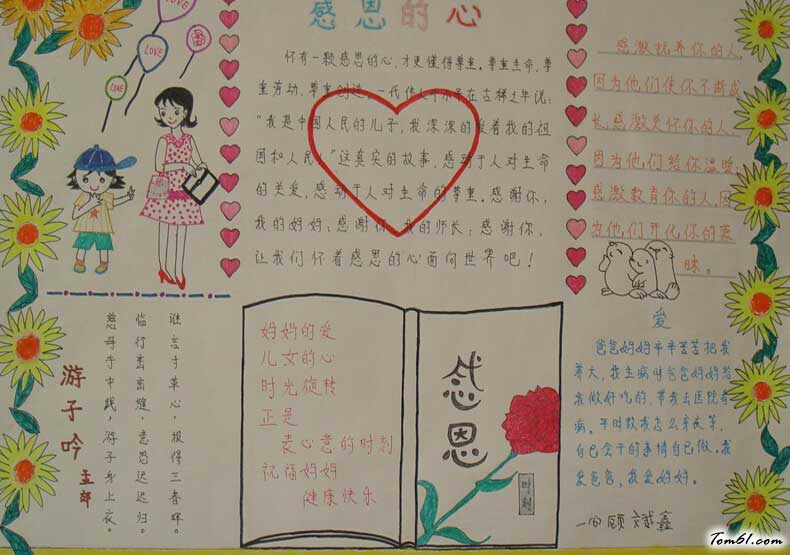 感恩的心
LOVE
LOVE
LOVE
怀有一颗感恩的心,才更懂得尊重。尊重生命,尊
重劳动,尊重创造。一代伟人邓小平在古稀之年说:
“我是中国人民的儿子,我深深的爱着我的祖
国和人民。”这真实的故事,感动于人对生命
的关爱,感动于人对生命的尊重。感谢你,
我的妈妈;感谢你,我的师长;感谢你,
让我们怀着感恩的心面向世界吧!
感激抚养你的人,
因为他们使你不断成
长;感激关怀你的人,
因为他们给你温暖;
感激教育你的人,因
为他们开化你的蒙
昧。
游子吟
孟郊
慈母手中线,游子身上衣。
临行密密缝,意恐迟迟归。
谁言寸草心,报得三春晖。
妈妈的爱
儿女的心
时光旋转
正是
表心意的时刻
祝福妈妈
健康快乐
感恩
时刻
爱
爸爸妈妈辛辛苦苦把我
养大,我生病时爸爸妈妈给
我做好吃的,带我去医院看
病。平时教我怎么穿衣等,
自己会干的事情自己做。我
爱爸爸,我爱妈妈。
顾斌鑫
Tom61.com